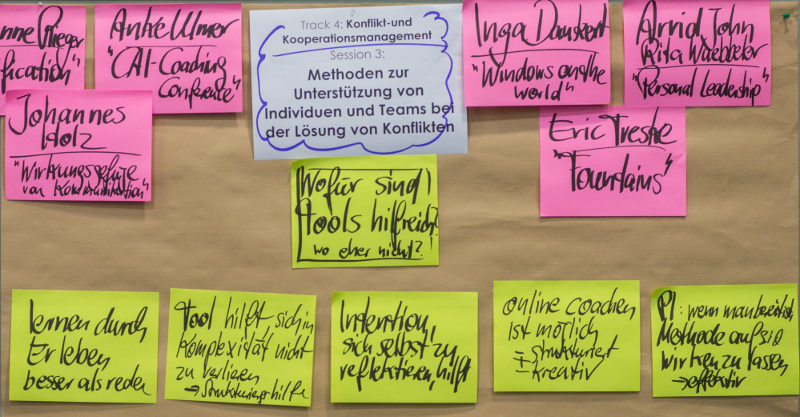 nne Pfleger
"fication"
Anke Ulmer
"CAI-Coaching
Conference"
Track 4: Konflikt-und
Kooperationsmanagement
Session 3:
Methoden zur
Unterstützung von
Individuen und Teams bei
der Lösung von Konflikten
Inga
"Windows on the
world"
Arvid John
Rita
"Personal Leadership"
Johannes
Holz
"Wirkungsgefüge
von Kommunikation"
Eric Treske
"Fountains"
Wofür sind
tools hilfreich?
wo eher nicht?
lernen durch
Erleben
besser als reden
Tool hilft, sich in
Komplexität nicht
zu verlieren
→ Strukturierhilfe
Intention,
sich selbst zu
reflektieren, hilft
online coachen
ist möglich
+ strukturiert
- kreativ
PI: wenn man bereit ist,
Methode auf sich
wirken zu lassen
→ effektiv